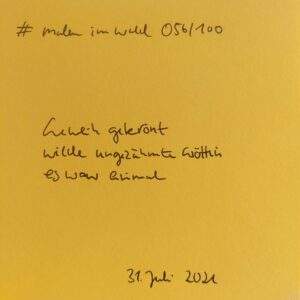 # malen im wald 056/100
Geweih gekrönt
wilde ungezähmte Göttin
es war einmal
31. Juli 2021